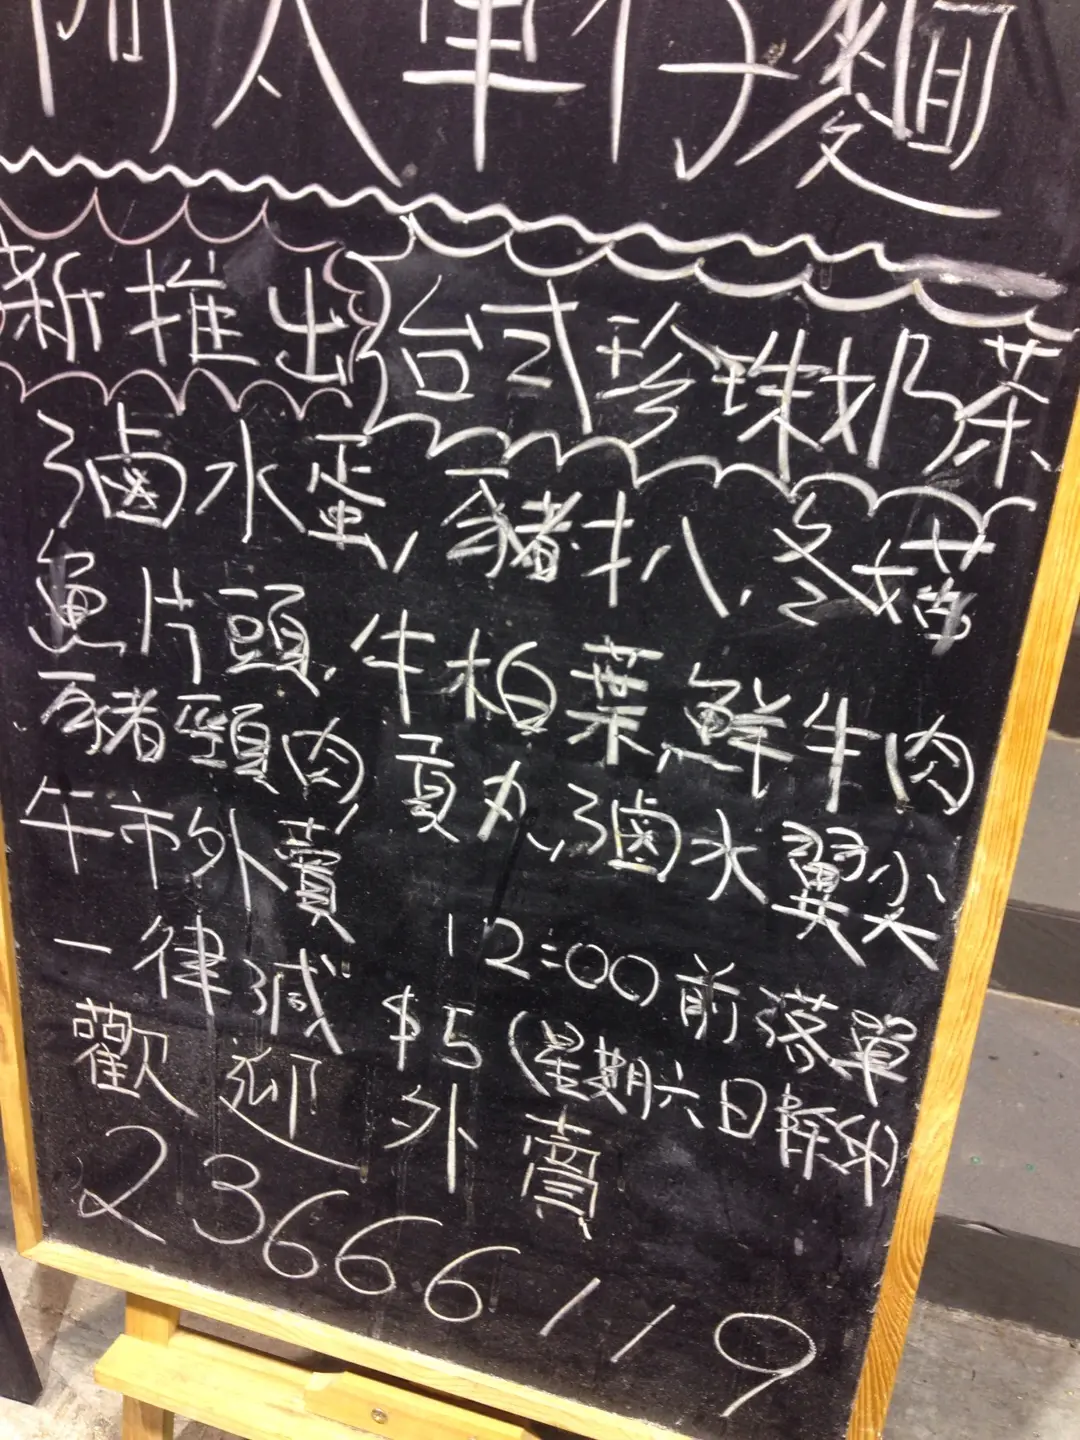 阿太車仔麵
新推出 台式珍珠奶茶
滷水蛋, 豬扒, 冬菇
魚片頭, 牛柏葉, 鮮牛肉
豬頸肉, 貢丸, 滷水翼尖
午市外賣 12:00前落單
一律減 $5 (星期六日除外)
歡迎外賣
23666119